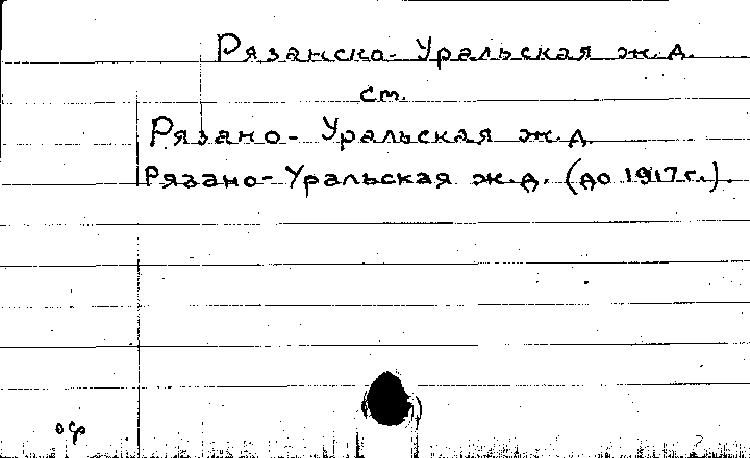 Рязанско-Уральская ж.д.
ст.
Рязано-Уральская ж.д.
Рязано-Уральская ж.д. (до 1917 г.).
оф